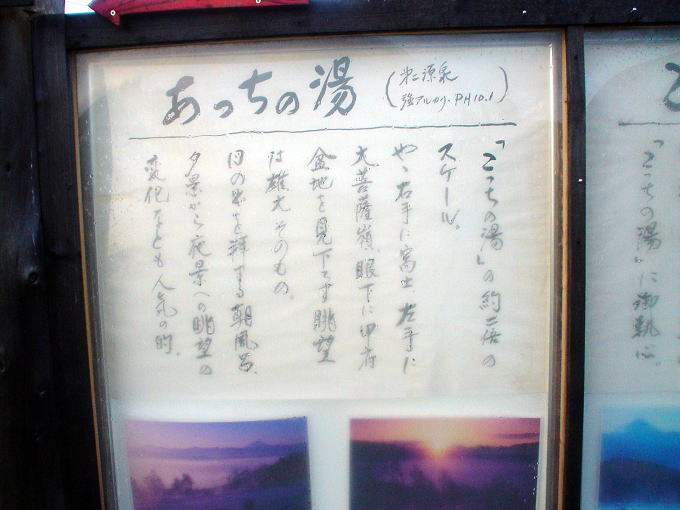 あっちの湯
(第二源泉
強アルカリ・PH10.1)
「こっちの湯」の約二倍の
スケール。
やや右手に富士 左手に
大菩薩嶺、眼下に甲府
盆地を見下ろす眺望
は雄大そのもの。
日の出を拝する朝風呂、
夕景から夜景への眺望の
変化なども人気の的。
「こっちの湯」に御執心。